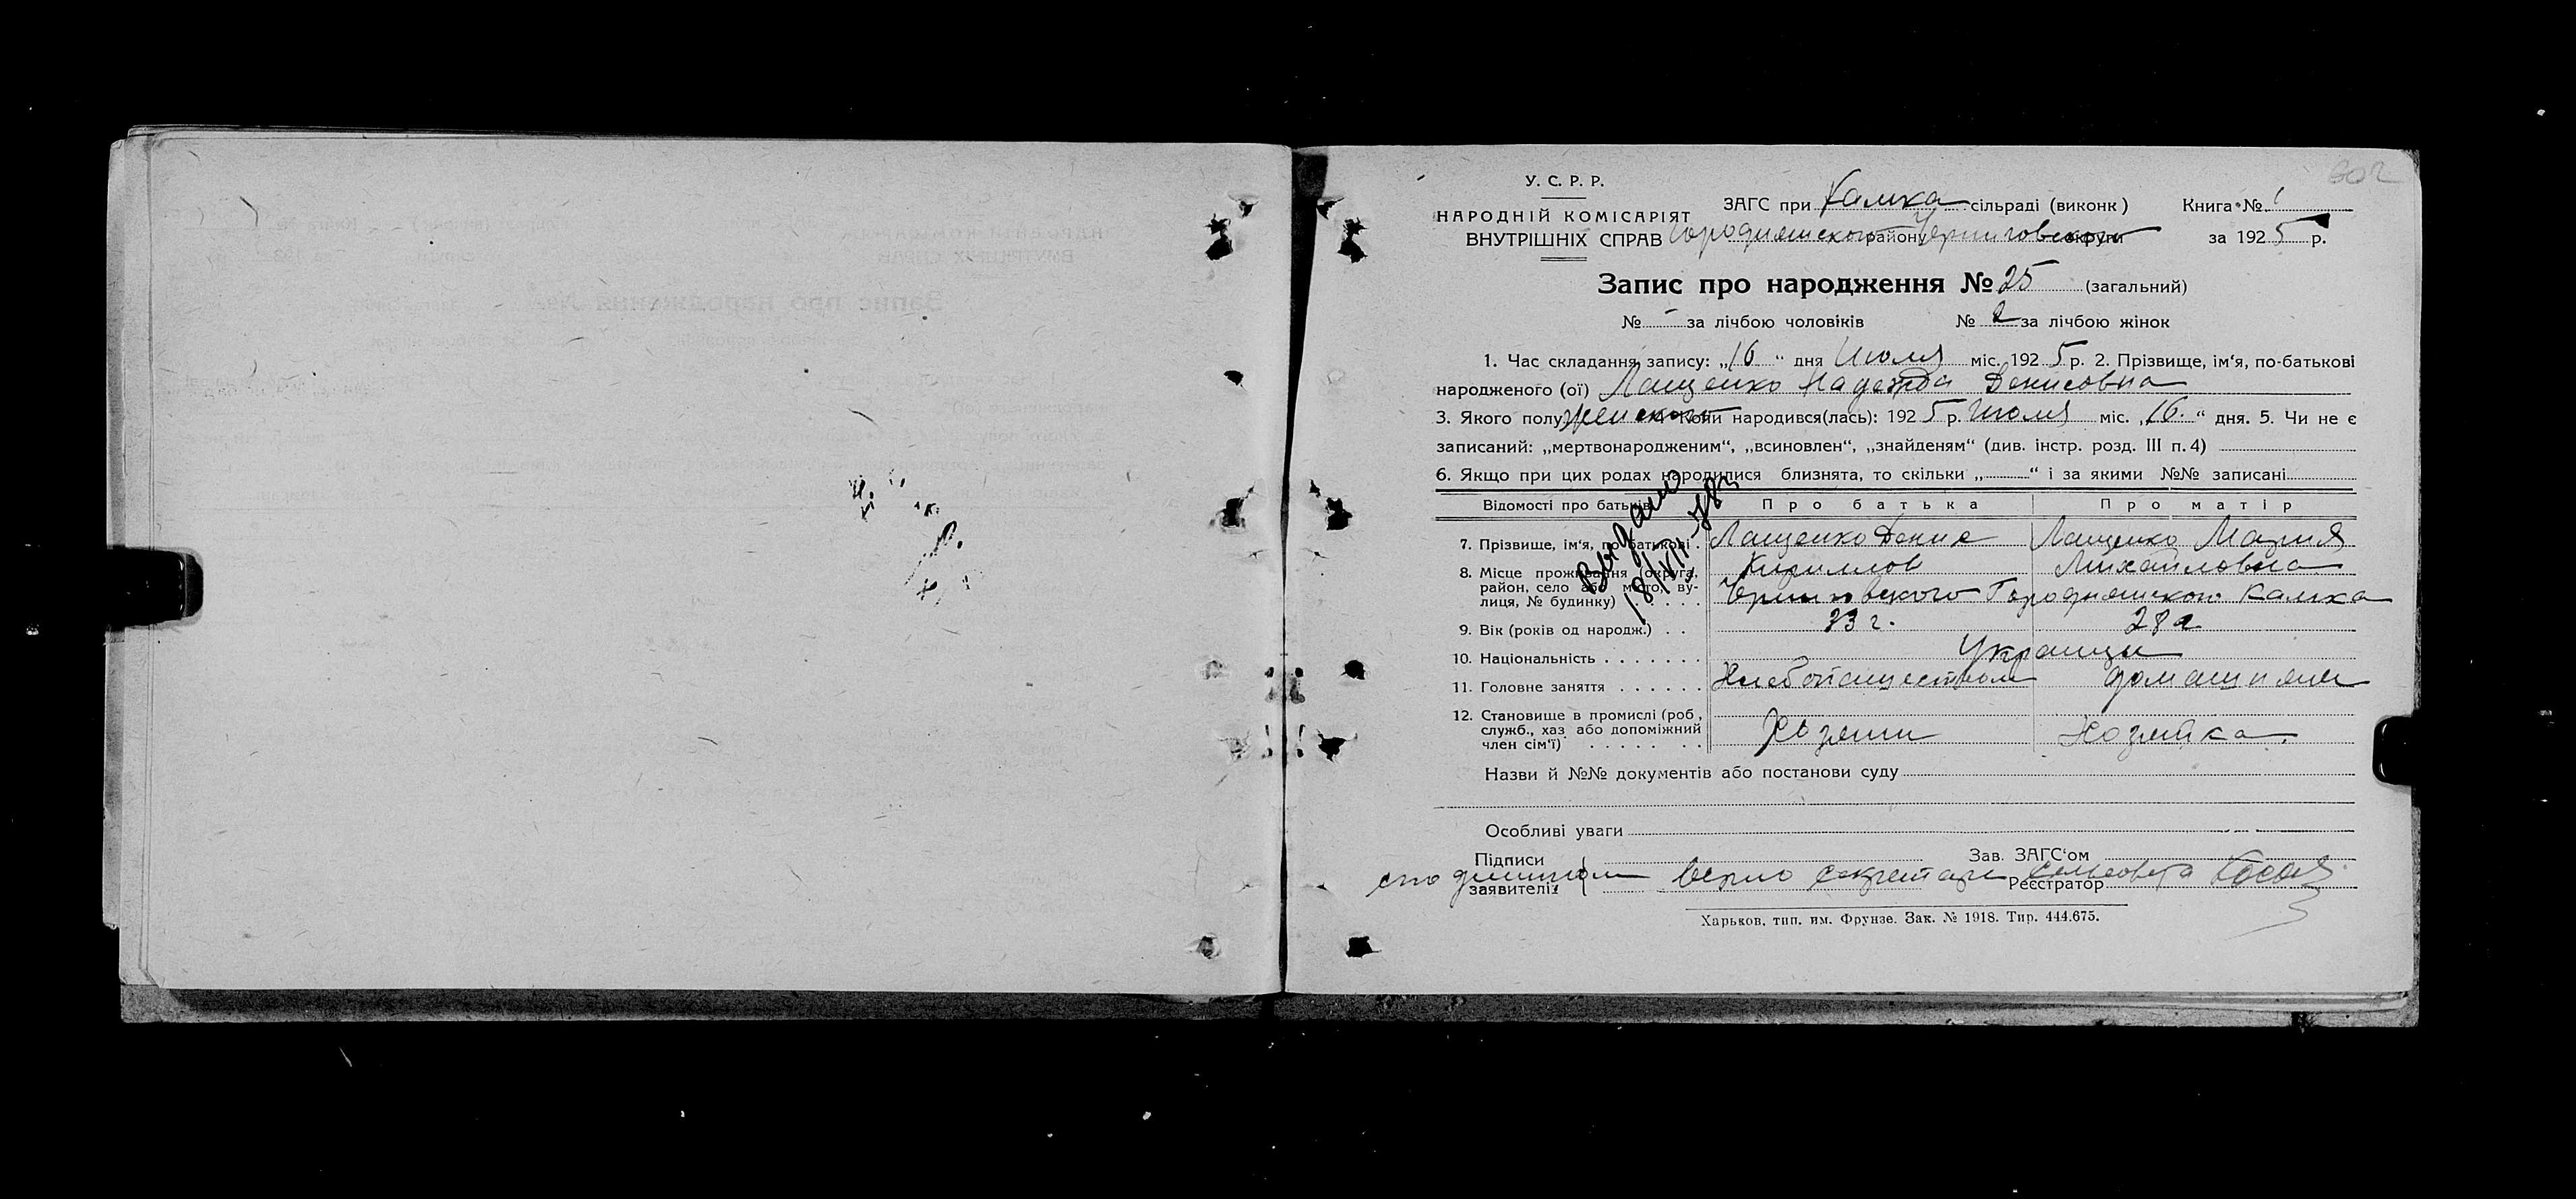 У. С. Р. Р.
НАРОДНІЙ КОМІСАРІЯТ
ВНУТРІШНІХ СПРАВ
ЗАГС при Камка сільраді (виконк)
Городнянского району Черниговского округи
Книга № 1
за 1925 р.
302
Запис про народження № 25 (загальний)
№ - за лічбою чоловіків № 2 за лічбою жінок
1. Час складання запису: „16“ дня Июля міс. 1925 р. 2. Прізвище, ім‘я, по-батькові
народженого (ої) Лащенко Надежда Денисовна
3. Якого полу женского 4 Коли народився(лась): 1925 р. Июля міс. „16.“ дня. 5. Чи не є
записаний: „мертвонародженим“, „всиновлен“, „знайденям“ (див. інстр. розд. III п. 4)
6. Якщо при цих родах народилися близнята, то скільки „ “ і за якими №№ записані
Відомості про батьків Про батька Про матір
7. Прізвище, ім‘я, по-батькові . Лащенко Денис Лащенко Мария
Кириллов Михайловна
8. Місце проживання (округа,
район, село або місто, ву-
лиця, № будинку) . . . . . Черниговского Городнянского Камка
9. Вік (років од народж.) . . 33 г. 28 г
10. Національність . . . . . . . Украинцы
11. Головне заняття . . . . . . Хлебопашеством домашняя
12. Становище в промислі (роб,
служб., хаз. або допоміжний
член сім‘ї) . . . . . . . Хозяин Хозяйка
Выдано
18/VII
Назви й №№ документів або постанови суду
Особливі уваги
Підписи
заявителів
Зав. ЗАГС‘ом
Реєстратор
с подлинным верно секретарь сельсовета
Харьков, тип. им. Фрунзе. Зак. № 1918. Тир. 444.675.